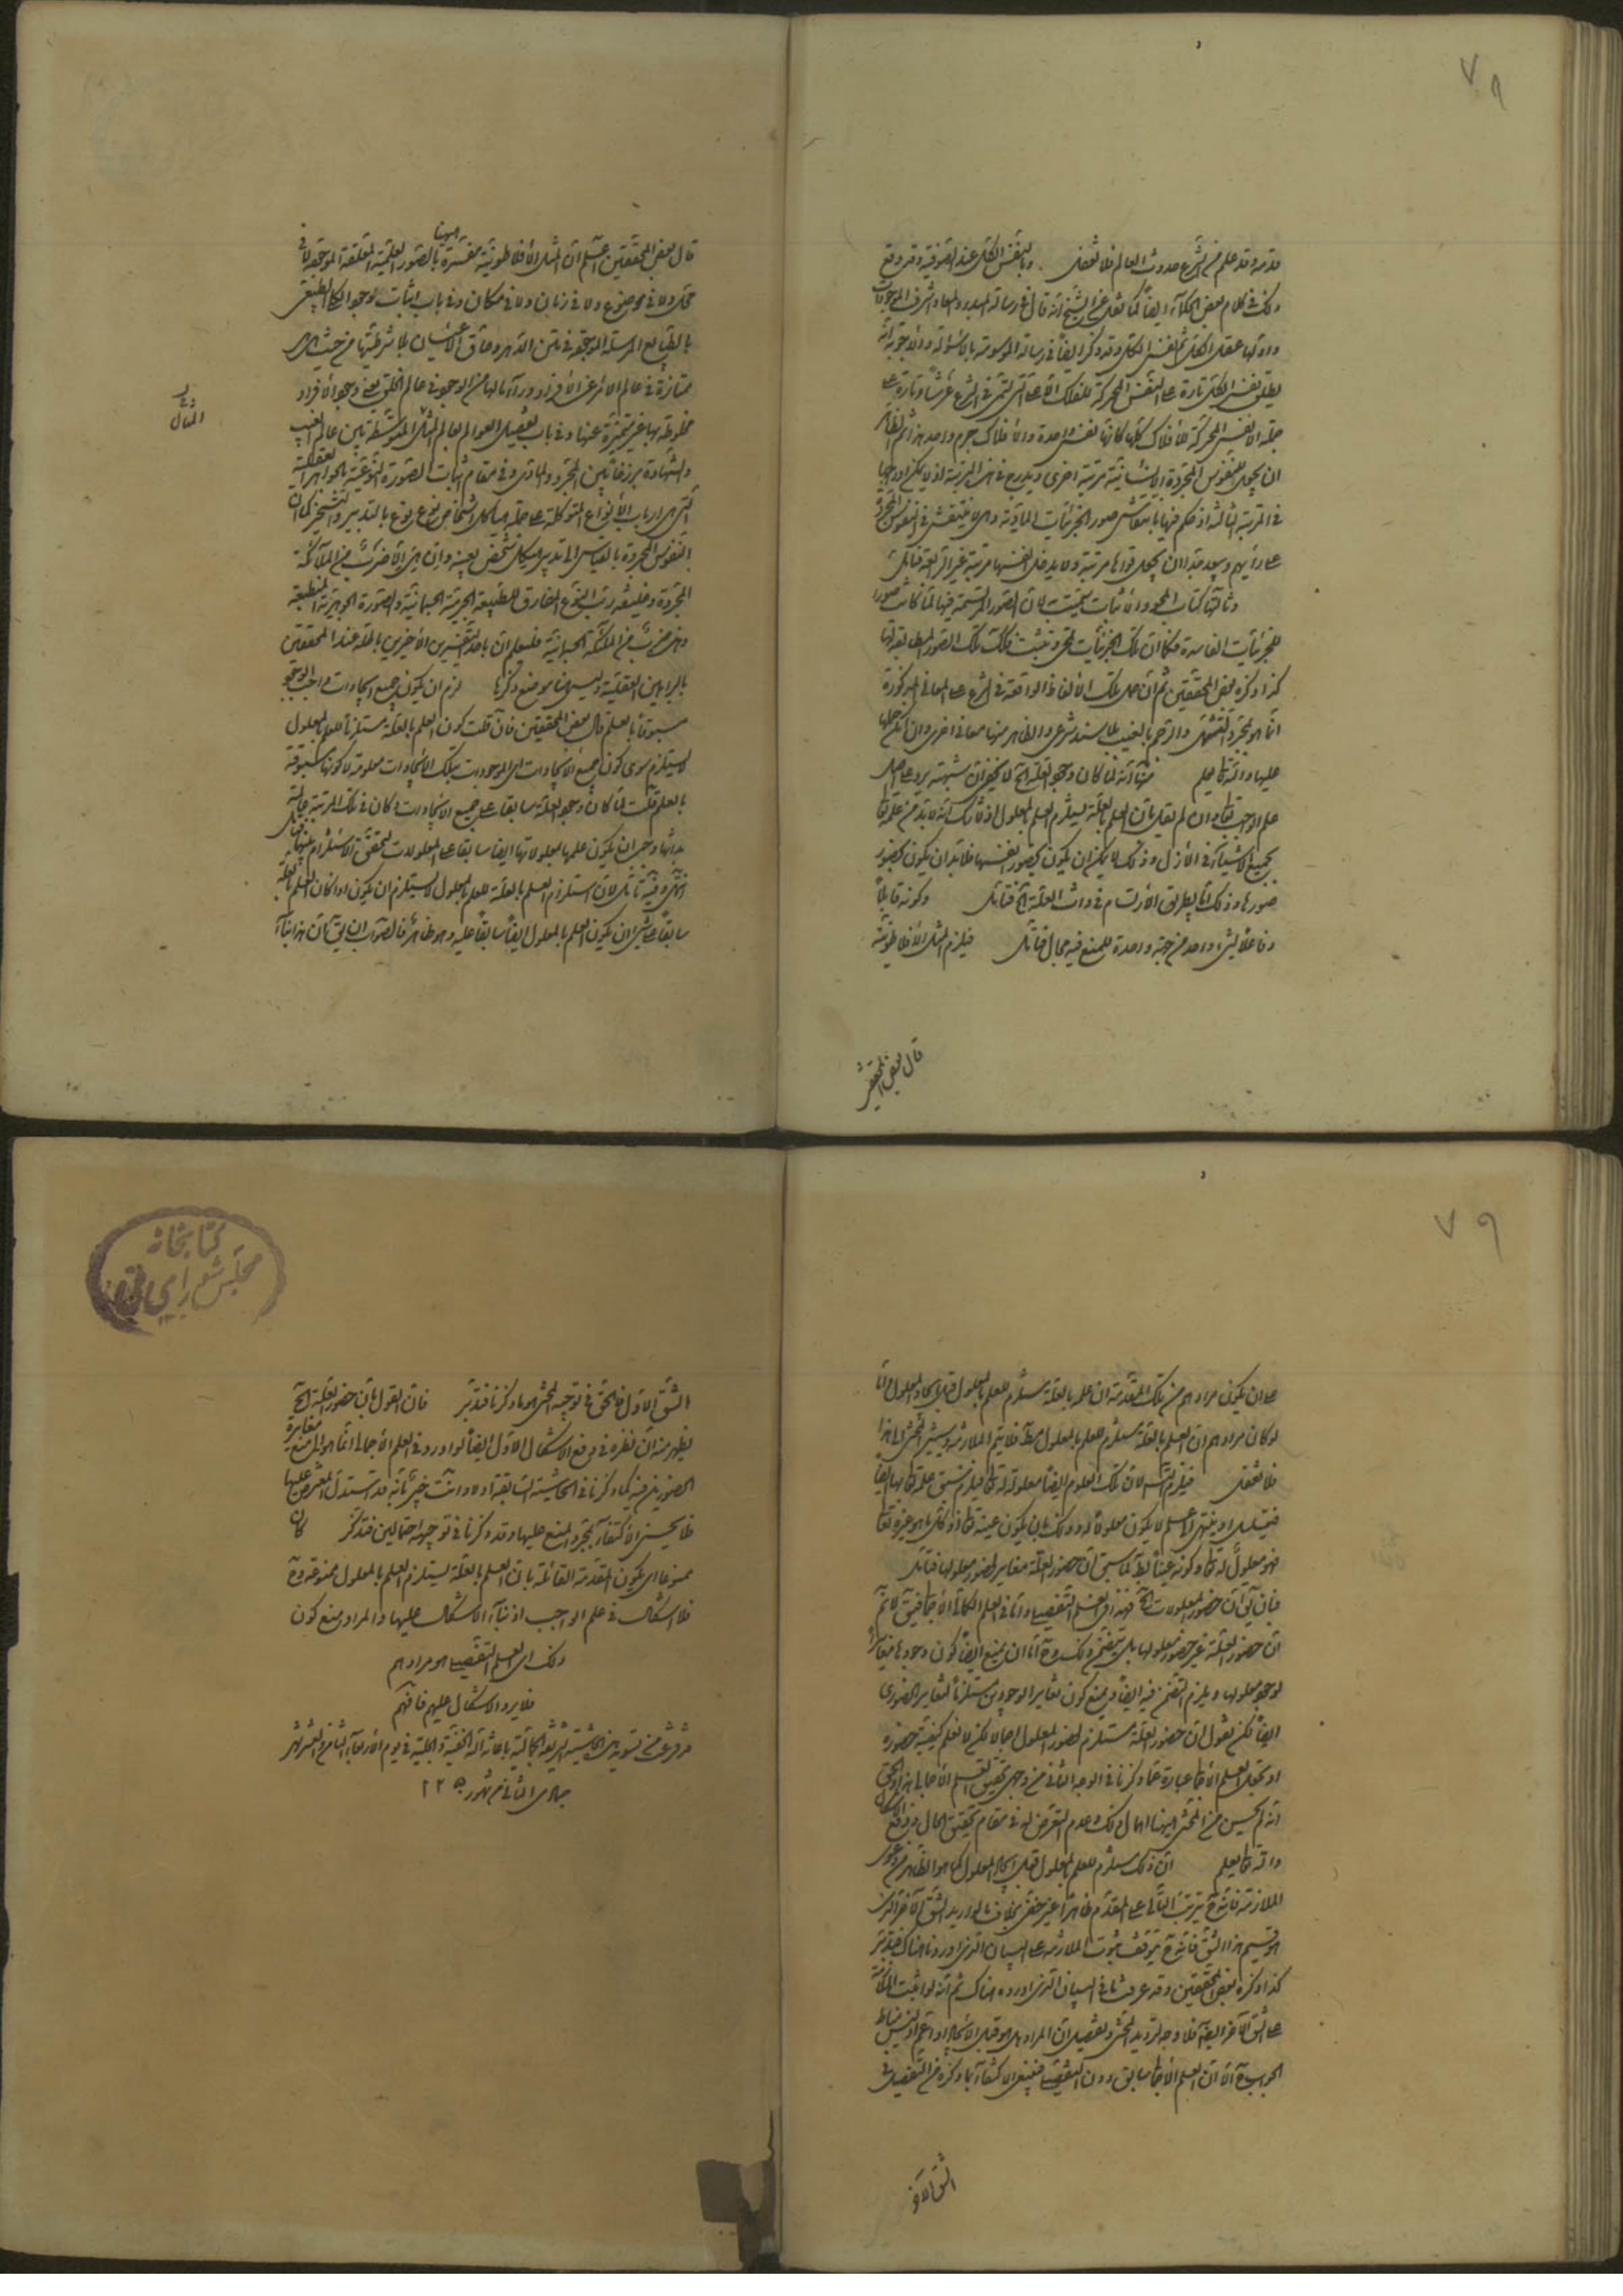 ٧٨
قدمه وقد علم من الشرع حدوث العالم فلا تغفل وبالنفس الكل عند الصوفية وقد وقع
ذلك في كلام بعض الحكماء ايضا كما نقل عن الشيخ انه قال في رسالة المبدء والمعاد
واولها عقل الكل ثم نفس الكل وقد ذكر ايضا في رسالته الموسومة بالاسئولة والاجوبة انه
يطلق نفس الكل تارة على النفس المحركة للفلك الاقصى التي تسمى في الشرع عرشا وتارة على
جملة الانفس المحركة للافلاك كلها كانها نفس واحدة والافلاك جرم واحد
ان يجعل النفوس المجردة الانسانية مرتبة اخرى
في المرتبة الثالثة اذ حكم فيها بانتقاش صور الجزئيات المادية وهي لا ينتقش في النفوس المجردة
على رأيهم وبعيد جدا ان يجعل قواها مرتبة ولا يدخل انفسها مرتبة غير الرابعة فتامل
وثالثها كتاب المحو والاثبات سميت به لان الصور المرتسمة فيها لما كانت صورا
للجزئيات الفاسدة فكما ان تلك الجزئيات تمحى وتثبت فكذلك تلك الصور المطابقة لها
كذا ذكره بعض المحققين ثم ان حمل تلك الالفاظ الواقعة في الشرع على المعاني المذكورة
انما هو بمجرد التشهي والرجم بالغيب بلا سند شرعي والظاهر منها معان اخرى وان امكن حملها
عليها والله تعالى يعلم
علم الواجب تعالى وان لم نقل بان العلم بالعلة يستلزم العلم بالمعلول اذ لا شك انه لا بد من علمه تعالى
بجميع الاشياء في الازل وذلك لا يمكن ان يكون بحضور انفسها فلا بد ان يكون بحضور
صورها وذلك اما بطريق الارتسام في ذات العلة الخ فتامل وكونه قابلا
وفاعلا لشيء واحد من جهة واحدة للمنع فيه مجال فتامل فيلزم المثل الافلاطونية
قال بعض المحققين
قال بعض المحققين اعلم ان المثل الافلاطونية مفسرة ههنا بالصور العلمية المعلقة الموجودة لا في
محل ولا في موضوع ولا في زمان ولا في مكان وفي باب اثبات وجود الكلي الطبيعي
بالطبايع المرسلة الموجودة في متن الدهر وحاق الاعيان بلا شرطيتها من حيث هي
ممتازة في عالم الامر عن الافراد وراء ما لها من الوجود في عالم الخلق بعين وجود الافراد
مخلوطة بها غير متميزة عنها وفي باب تفصيل العوالم بعالم المثل المتوسطة بين عالم الغيب
والشهادة برزخا بين المجرد والمادي وفي مقام اثبات الصورة النوعية بالجواهر العقلية
التي هي ارباب الانواع المتوكلة على جملة هياكل اشخاص نوع نوع بالتدبير والتسخير كما ان
النفوس المجردة بالقياس الى تدبير هيكل شخص بعينه وان هي الا ضرب من الملائكة
المجردة
وهي ضرب من الملائكة الجسمانية فليعلم ان باحد التفسيرين الاخيرين باطلة عند المحققين
بالبراهين العقلية وليس ههنا موضع ذكرها لزم ان يكون جميع ايجادات واجب الوجود
مسبوقا بالعلم قال بعض المحققين فان قلت كون العلم بالعلة مستلزما للعلم بالمعلول
لا يستلزم سوى كون جميع الايجادات اي الموجودات بتلك الايجادات معلومة لا كونها مسبوقة
بالعلم قلت لما كان وجود العلة سابقا على جميع الايجادات وكان في تلك المرتبة عالمة
بذاتها وجب ان يكون علمها بمعلولاتها ايضا سابقا على المعلولات لتحقق الاستلزام بينهما
انتهى وفيه تامل لان استلزام العلم بالعلة للعلم بالمعلول لا يستلزم ان يكون اذا كان العلم بالعلة
سابقا على شيء ان يكون العلم بالمعلول ايضا سابقا عليه وهو ظاهر فالصواب ان يقال ان هذا بناء
٧٩
على ان يكون مرادهم من تلك المقدمة ان علمه بالعلة مستلزم للعلم بالمعلول قبل ايجاد المعلول واما
لو كان مرادهم ان العلم بالعلة مستلزم للعلم بالمعلول مطلقا فلا يتم الملازمة وسيشير المحشي الى هذا
فلا تغفل فيلزم التسلسل لان تلك العلوم ايضا معلولة له تعالى فيلزم سبق علمه تعالى بها ايضا
فيتسلسل او ينتهي الى علم لا يكون معلولا له وذلك بان يكون عينه تعالى اذ كل ما هو غيره تعالى
فهو معلول له تعالى وكونه عينا باطل لما سبق ان حضور العلة مغاير لحضور معلولها فتامل
فان قيل ان حضور المعلولات الخ فهذا في العلم التفصيلي واما في العلم الكمالي الاجمالي فيقال لا نم
ان حضور العلة غير حضور معلولها بل يتضمن ذلك واما ان يمنع ايضا كون وجودها مغايرا
لوجود معلولها ويلزم التضمن فيه ايضا او يمنع كون تغاير الوجودين مستلزما لتغاير الحضورين
ايضا لكن نقول ان حضور العلة مستلزم لحضور المعلول اجمالا لكن لا نعلم كيفية حضوره
او نجعل العلم الاجمالي عبارة عما ذكرنا في الوجه الثاني من وجهي تحقيق العلم الاجمالي هذا والحق
انه لم يحسن من المحشي ههنا اهمال ذلك وعدم التعرض له في مقام تحقيق الحال ودفع الاشكال
والله تعالى يعلم ان ذلك مستلزم للعلم بالمعلول قبل ايجاد المعلول كما هو الظاهر من دعوى
الملازمة فانه ح يترتب التالي على المقدم ظاهرا غير خفي بخلاف ما لو اريد الشق الآخر الذي
هو قسيم هذا الشق فانه ح يتوقف ثبوت الملازمة على البيان الذي اوردنا هناك فتدبر
كذا ذكره بعض المحققين وقد عرفت ما في البيان الذي اورده هناك ثم انه لو اثبت الملازمة
على الشق الآخر ايضا فلا وجه لترديد المحشي وتفصيل ان المراد هل هو قبل الايجاد او اعم اذ ليس مناط
الجواب ح الا ان العلم الاجمالي سابق دون التفصيلي فينبغي الاكتفاء بما ذكره من التفصيل في
الشق الاول
كتابخانه
مجلس شورای ملی
الشق الاول فالحق في توجيه المحشي هو ما ذكرنا فتدبر فان القول بان حضور العلة الخ
يظهر منه ان نظره في دفع الاشكال الاول ايضا لو اورد في العلم الاجمالي انما هو الى منع مغايرة
الحضورين فيه كما ذكرنا في الحاشية السابقة اولا وانت خبير بانه قد استدل المعترض عليها
فلا يحسن الاكتفاء بمجرد المنع عليها وقد ذكرنا في توجيهه احتمالين فتذكر كان
ممنوعا اي يكون المقدمة القائلة بان العلم بالعلة يستلزم العلم بالمعلول ممنوعة وح
فلا اشكال في علم الواجب اذ بناء الاشكال عليها والمراد منع كون
ذلك اي العلم التفصيلي هو مرادهم
فلا يرد الاشكال عليهم فافهم
في يوم الاربعاء الثامن والعشر شهر
جمادى الثاني من شهور ١٢٢٥